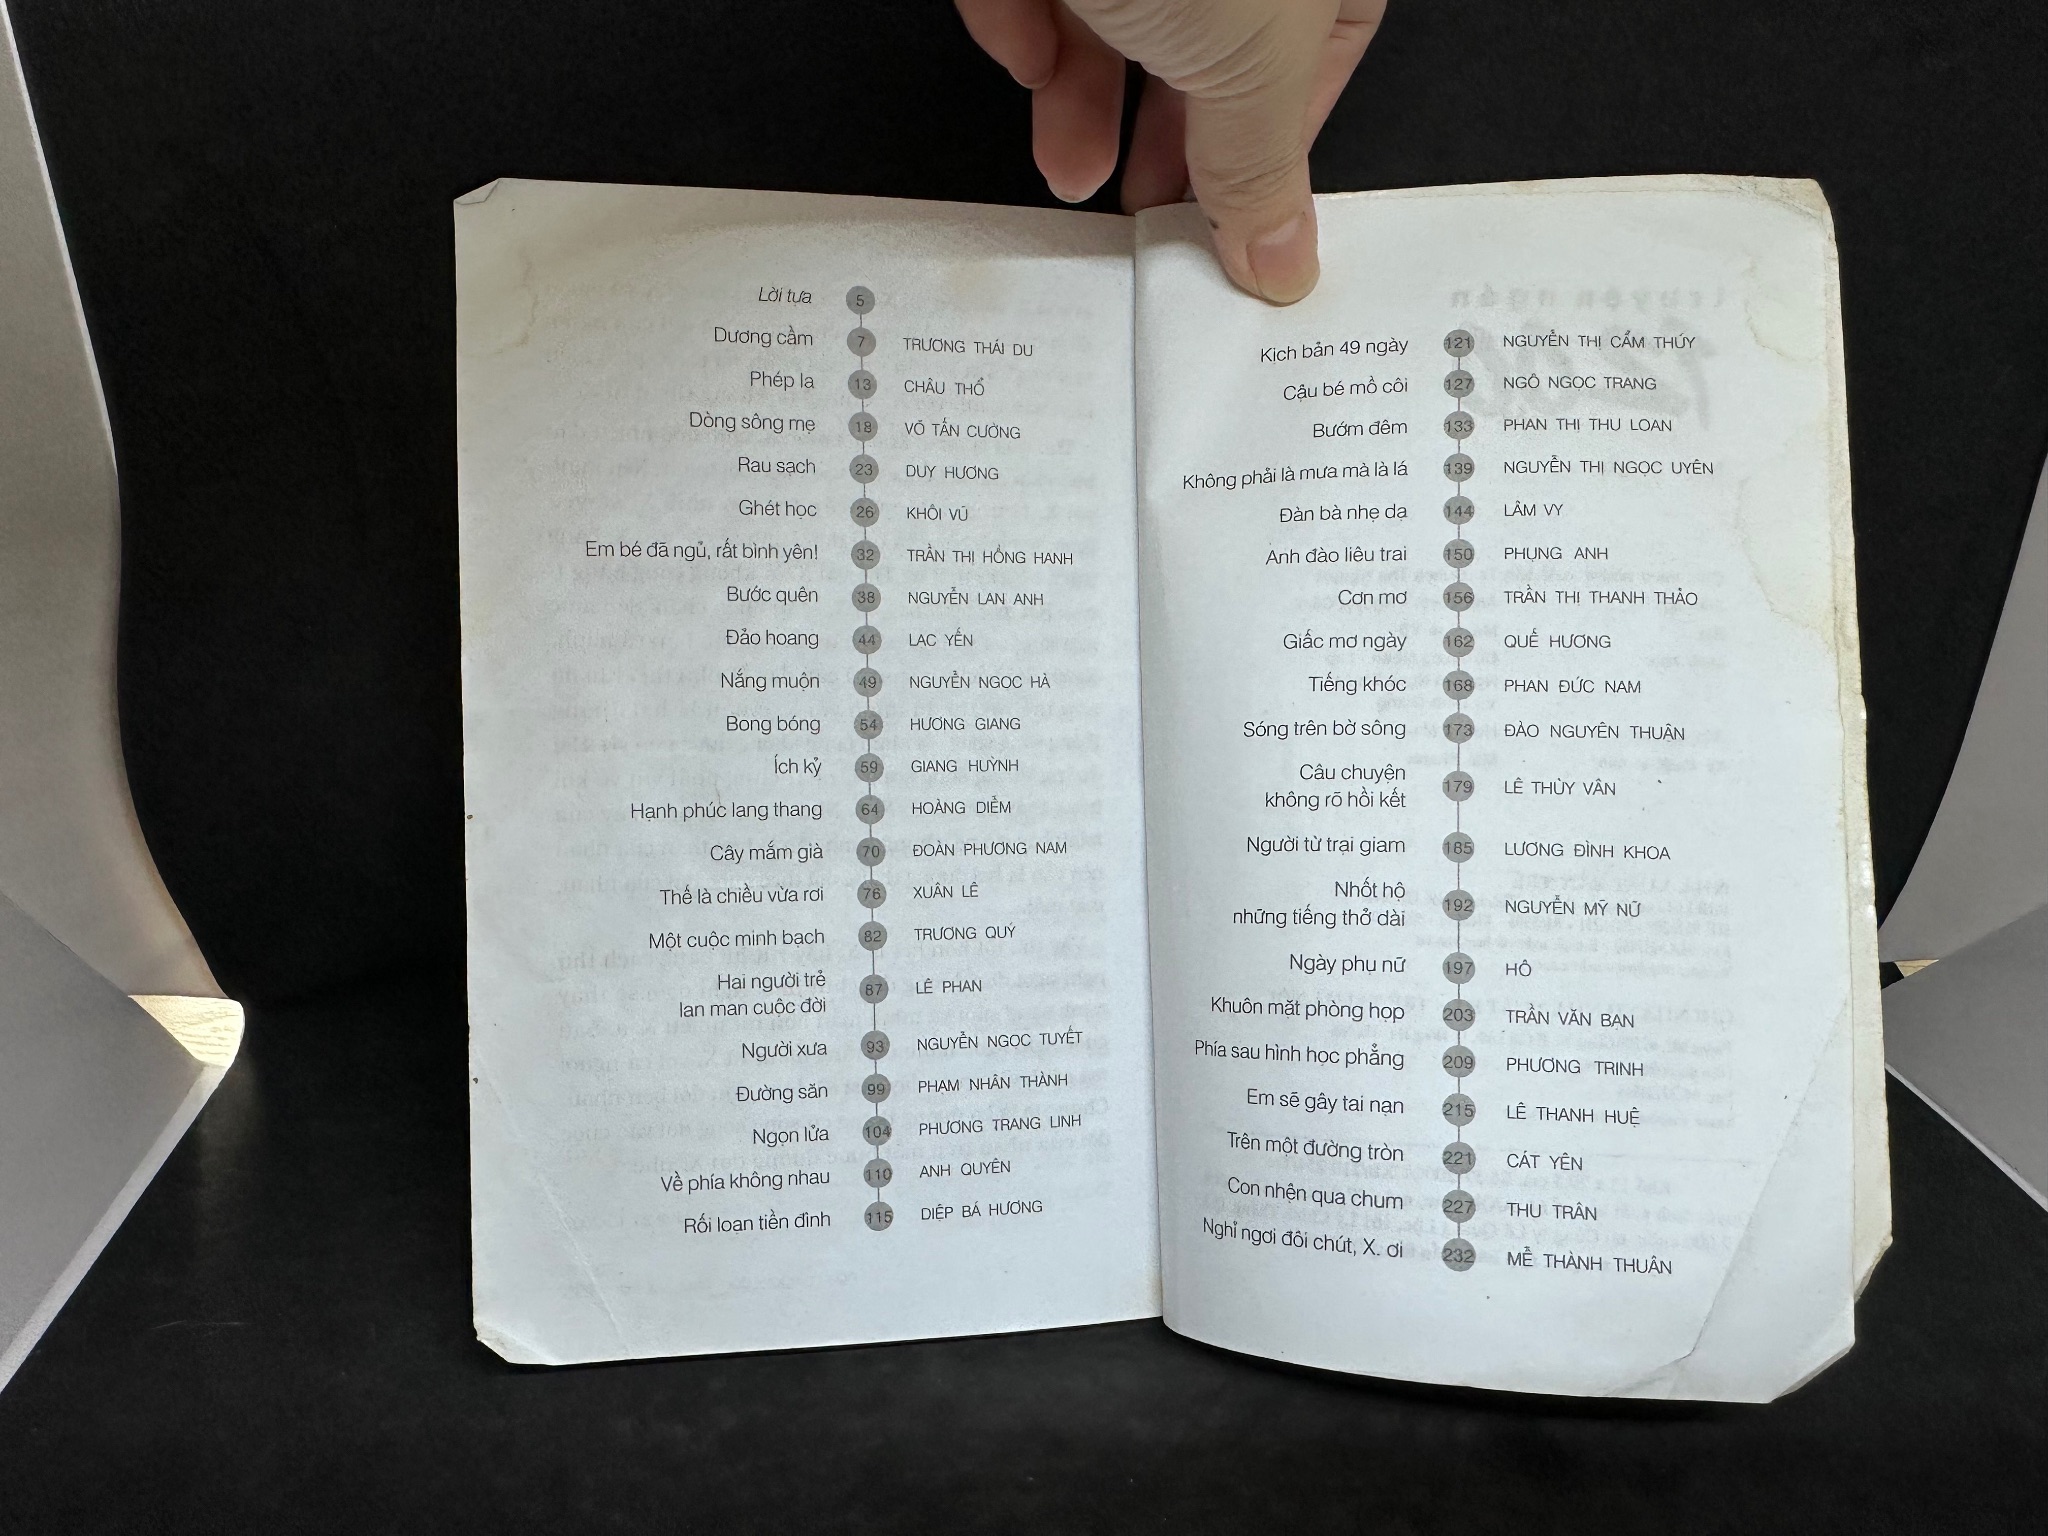 Lời tựa 5
Dương cầm 7 TRƯƠNG THÁI DU
Phép lạ 13 CHÂU THỔ
Dòng sông mẹ 18 VÕ TẤN CƯỜNG
Rau sạch 23 DUY HƯƠNG
Ghét học 26 KHÔI VŨ
Em bé đã ngủ, rất bình yên! 32 TRẦN THỊ HỒNG HẠNH
Bước quên 38 NGUYỄN LAN ANH
Đảo hoang 44 LẠC YẾN
Nắng muộn 49 NGUYỄN NGỌC HÀ
Bong bóng 54 HƯƠNG GIANG
Ích kỷ 59 GIANG HUỲNH
Hạnh phúc lang thang 64 HOÀNG DIỄM
Cây mắm già 70 ĐOÀN PHƯƠNG NAM
Thế là chiều vừa rơi 76 XUÂN LÊ
Một cuộc minh bạch 82 TRƯƠNG QUÝ
Hai người trẻ
lan man cuộc đời 87 LÊ PHAN
Người xưa 93 NGUYỄN NGỌC TUYẾT
Đường săn 99 PHẠM NHÂN THÀNH
Ngọn lửa 104 PHƯƠNG TRANG LINH
Về phía không nhau 110 ANH QUYÊN
Rối loạn tiền đình 115 DIỆP BÁ HƯƠNG
Kịch bản 49 ngày 121 NGUYỄN THỊ CẨM THÚY
Cậu bé mồ côi 127 NGÔ NGỌC TRANG
Bướm đêm 133 PHAN THỊ THU LOAN
Không phải là mưa mà là lá 139 NGUYỄN THỊ NGỌC UYÊN
Đàn bà nhẹ dạ 144 LÂM VY
Anh đào liêu trai 150 PHỤNG ANH
Cơn mơ 156 TRẦN THỊ THANH THẢO
Giấc mơ ngày 162 QUẾ HƯƠNG
Tiếng khóc 168 PHAN ĐỨC NAM
Sóng trên bờ sông 173 ĐÀO NGUYÊN THUẬN
Câu chuyện
không rõ hồi kết 179 LÊ THÙY VÂN
Người từ trại giam 185 LƯƠNG ĐÌNH KHOA
Nhốt hộ
những tiếng thở dài 192 NGUYỄN MỸ NỮ
Ngày phụ nữ 197 HÔ
Khuôn mặt phòng họp 203 TRẦN VĂN BẠN
Phía sau hình học phẳng 209 PHƯƠNG TRINH
Em sẽ gây tai nạn 215 LÊ THANH HUỆ
Trên một đường tròn 221 CÁT YÊN
Con nhện qua chum 227 THU TRÂN
Nghỉ ngơi đôi chút, X. ơi 232 MỄ THÀNH THUẬN